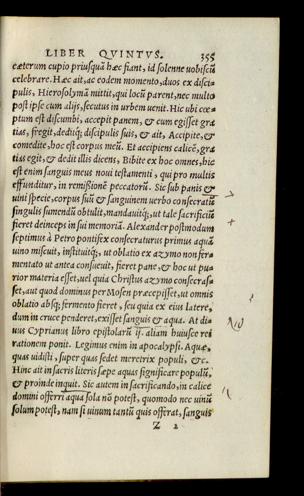 LIBER QVINTVS. 355
cæterum cupio priusquã hæc fiant, id solenne uobiscũ
celebrare. Hæc ait, ac eodem momento, duos ex disci-
pulis, Hierosolymã mittit, qui locũ parent, nec multo
post ipse cum alijs, secutus in urbem uenit. Hic ubi cœ-
ptum est discumbi, accepit panem, & cum egisset gra
tias, fregit, deditq; discipulis suis, & ait, Accipite, &
comedite, hoc est corpus meũ. Et accipiens calicẽ, gra
tias egit, & dedit illis dicens, Bibite ex hoc omnes, hic
est enim sanguis meus noui testamenti, qui pro multis
effunditur, in remißionẽ peccatorũ. Sic sub panis &
uini specie, corpus suũ & sanguinem uerbo consecratũ
singulis sumendũ obtulit, mandauitq;, ut tale sacrificiũ
fieret deinceps in sui memoriã. Alexander postmodum
septimus à Petro pontifex consecraturus primus aquã
uino miscuit, instituitq;, ut oblatio ex azymo non fer-
mentato ut antea consueuit, fieret pane, & hoc ut pu-
rior materia esset, uel quia Christus azymo consecras-
set, aut quod dominus per Mosen præcepisset, ut omnis
oblatio absq; fermento fieret, seu quia ex eius latere,
dum in cruce penderet, exisset sanguis & aqua. At di-
uus Cyprianus libro epistolarũ ij. aliam huiusce rei
rationem ponit. Legimus enim in apocalypsi. Aquæ,
quas uidisti, super quas sedet meretrix populi, &c.
Hinc ait in sacris literis sæpe aquas significare populũ,
& proinde inquit. Sic autem in sacrificando, in calice
domini offerri aqua sola nõ potest, quomodo nec uinũ
solum potest, nam si uinum tantũ quis offerat, sanguis
Z 2